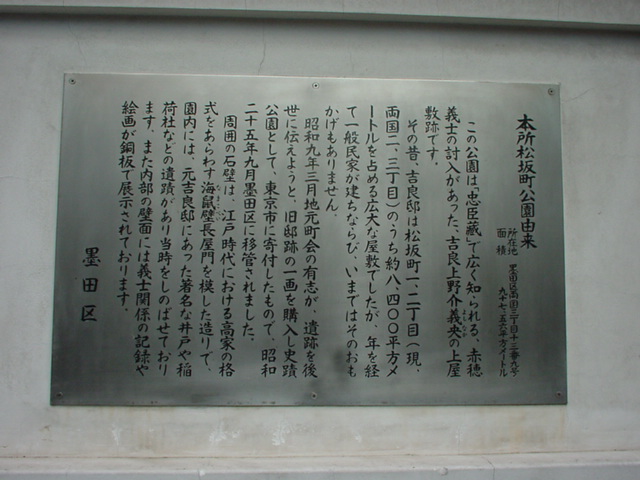 本所松坂町公園由来
所在地 墨田区両国三丁目十三番九号
面積 九十七・五六平方メートル
この公園は「忠臣蔵」で広く知られる、赤穂
義士の討入があった、吉良上野介義央の上屋
敷跡です。
その昔、吉良邸は松坂町一、二丁目（現、
両国二、三丁目）のうち約八、四〇〇平方メ
ートルを占める広大な屋敷でしたが、年を経
て一般民家が建ちならび、いまではそのおも
かげもありません。
昭和九年三月地元町会の有志が、遺跡を後
世に伝えようと、旧邸跡の一画を購入し史蹟
公園として、東京市に寄付したもので、昭和
二十五年九月墨田区に移管されました。
周囲の石壁は、江戸時代における高家の格
式をあらわす海鼠壁長屋門を模した造りで、
園内には、元吉良邸にあった著名な井戸や稲
荷社などの遺蹟があり当時をしのばせており
ます。また内部の壁面には義士関係の記録や
絵画が銅板で展示されております。
墨田区